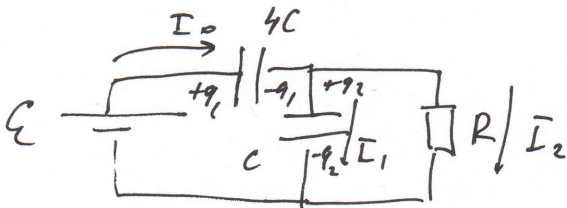 I₀ 4C
+q₁ -q₁ +q₂
ℰ C -q₂ I₁ R I₂